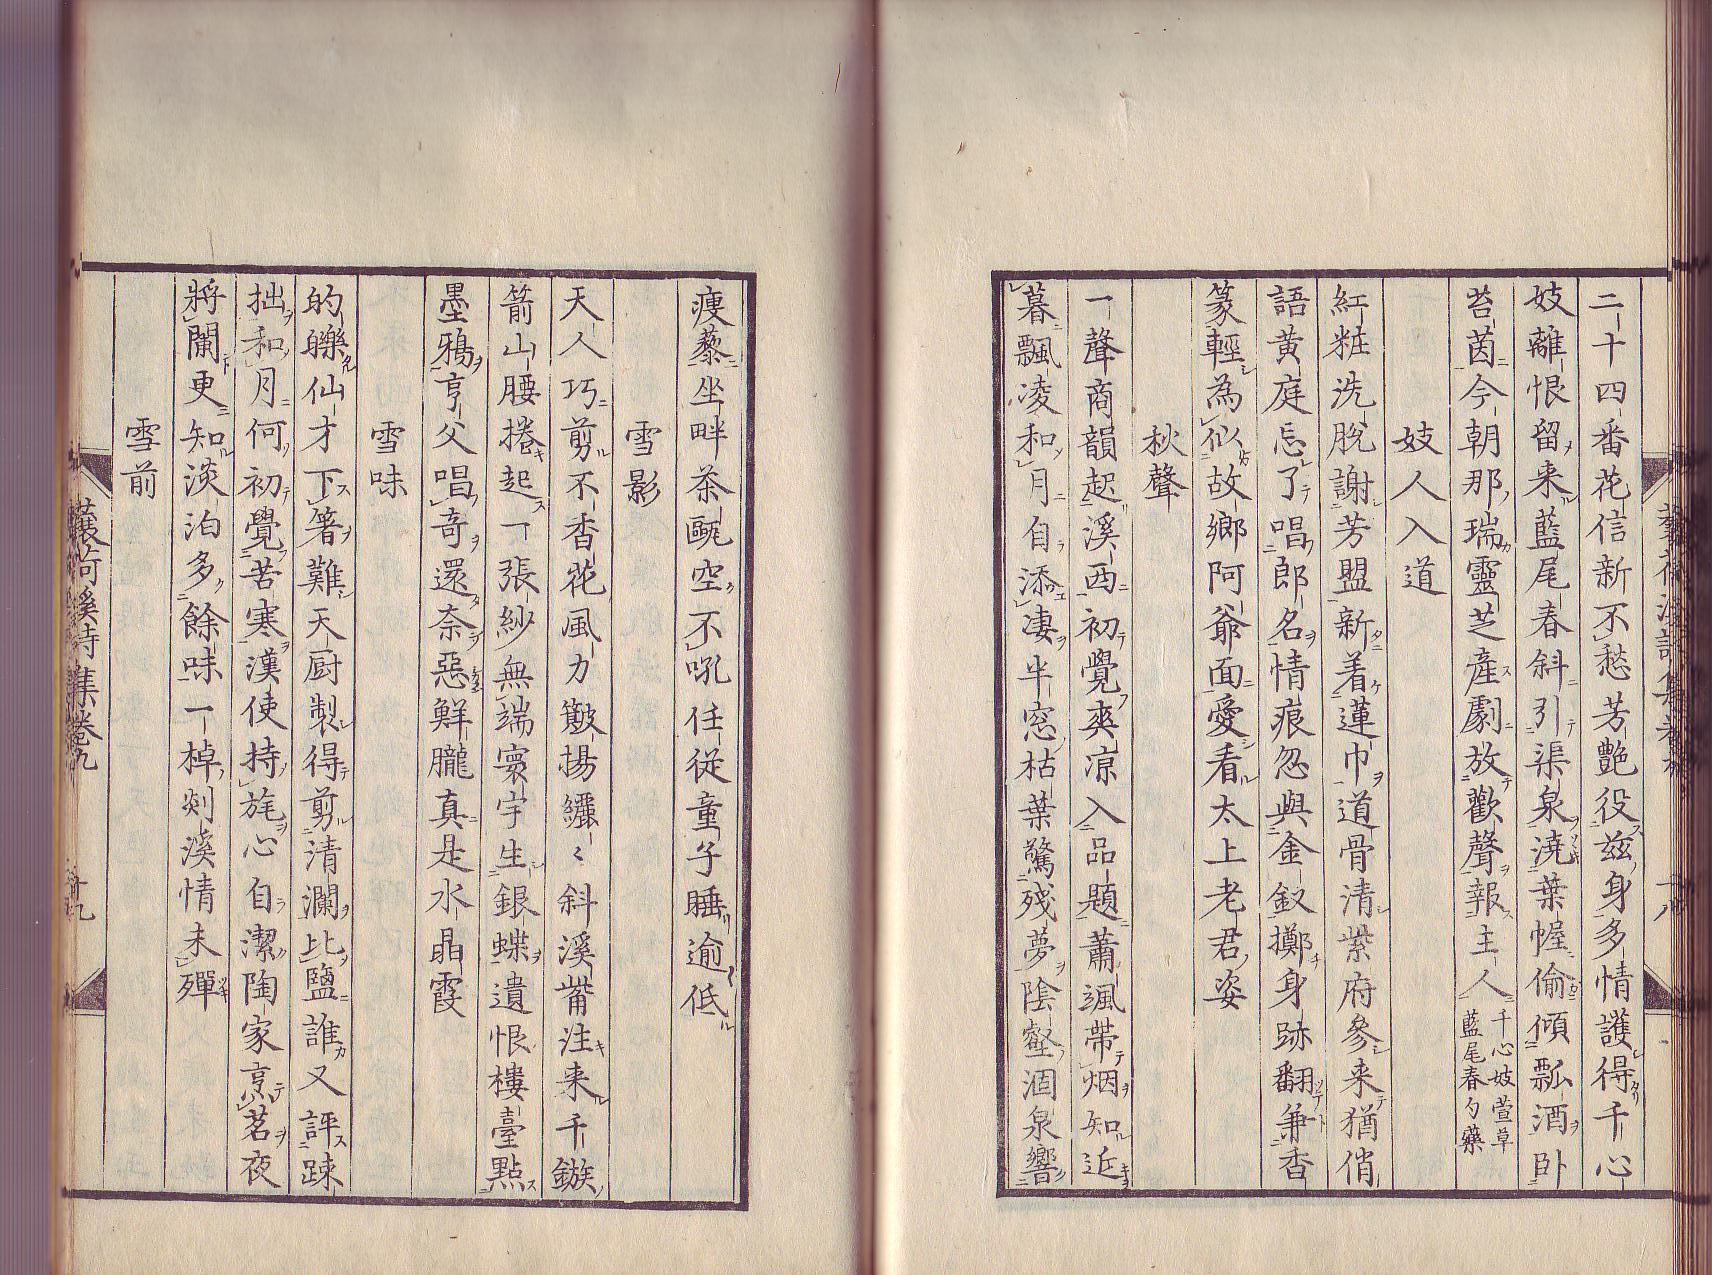 二十四番花信新不愁芳艶役茲身多情護得千心
妓離恨留来藍尾春斜引渠泉澆葉幄偷傾瓢酒卧
苔茵今朝那瑞靈芝産劇放歡聲報主人
千心妓萱草
藍尾春勺藥
妓人入道
紅粧洗脫謝芳盟新着蓮巾道骨清紫府參来猶俏
語黄庭忘了唱郎名情痕忽與金釵擲身跡翻兼香
篆輕為似故鄉阿爺面愛看太上老君姿
秋聲
一聲商韻起溪西初覺爽凉入品題蕭颯帶烟知近
暮飄凌和月自添凄半窓枯葉驚残夢陰壑涸泉響
十八
瘦藜坐畔茶甌空不吼任従童子睡逾低
雪影
天人巧剪不香花風力簸揚纚〻斜溪觜注来千鏃
箭山腰捲起一張紗無端寰宇生銀蝶遺恨樓臺點
墨鴉亨父唱奇還奈惡鮮朧真是水晶霞
雪味
的皪仙才下箸難天厨製得剪清瀾比鹽誰又評踈
拙和月何初覺苦寒漢使持旄心自潔陶家烹茗夜
將闌更知淡泊多餘味一棹剡溪情未殫
雪前
蘘荷溪詩集卷九
十九